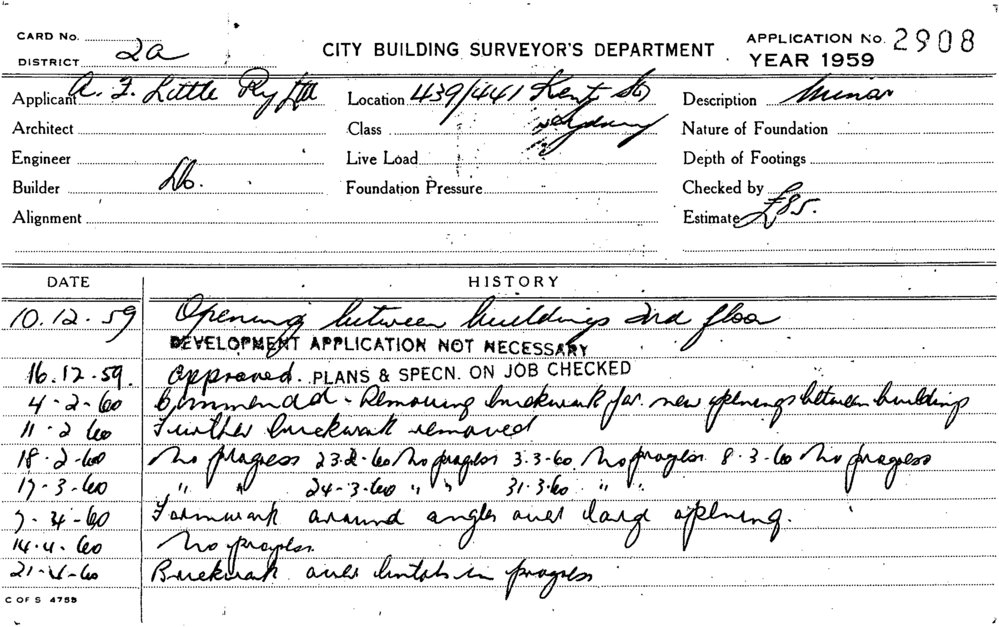 CARD No.
DISTRICT 2a
CITY BUILDING SURVEYOR'S DEPARTMENT
APPLICATION No. 2908
YEAR 1959
Applicant A. F. Little Pty Ltd Location 439/441 Kent St Description Minor
Architect Class Sydney Nature of Foundation
Engineer Live Load Depth of Footings
Builder Do. Foundation Pressure Checked by
Alignment Estimate £85.
DATE HISTORY
10.12.59 Opening between buildings 2nd floor
DEVELOPMENT APPLICATION NOT NECESSARY
16.12.59. Approved. PLANS & SPECN. ON JOB CHECKED
4-2-60 Commenced - Removing brickwork for new openings between building
11-2 60 Further brickwork removed
18-2-60 No progress 23-2-60 No progress 3.3-60 No progress 8-3-60 No progress
17-3-60 " " 24-3-60 " " 31.3.60 " "
7-4-60 Formwork around angles over large opening.
14.4.60 No progress.
21-4-60 Brickwork over lintols in progress
C OF S 4755